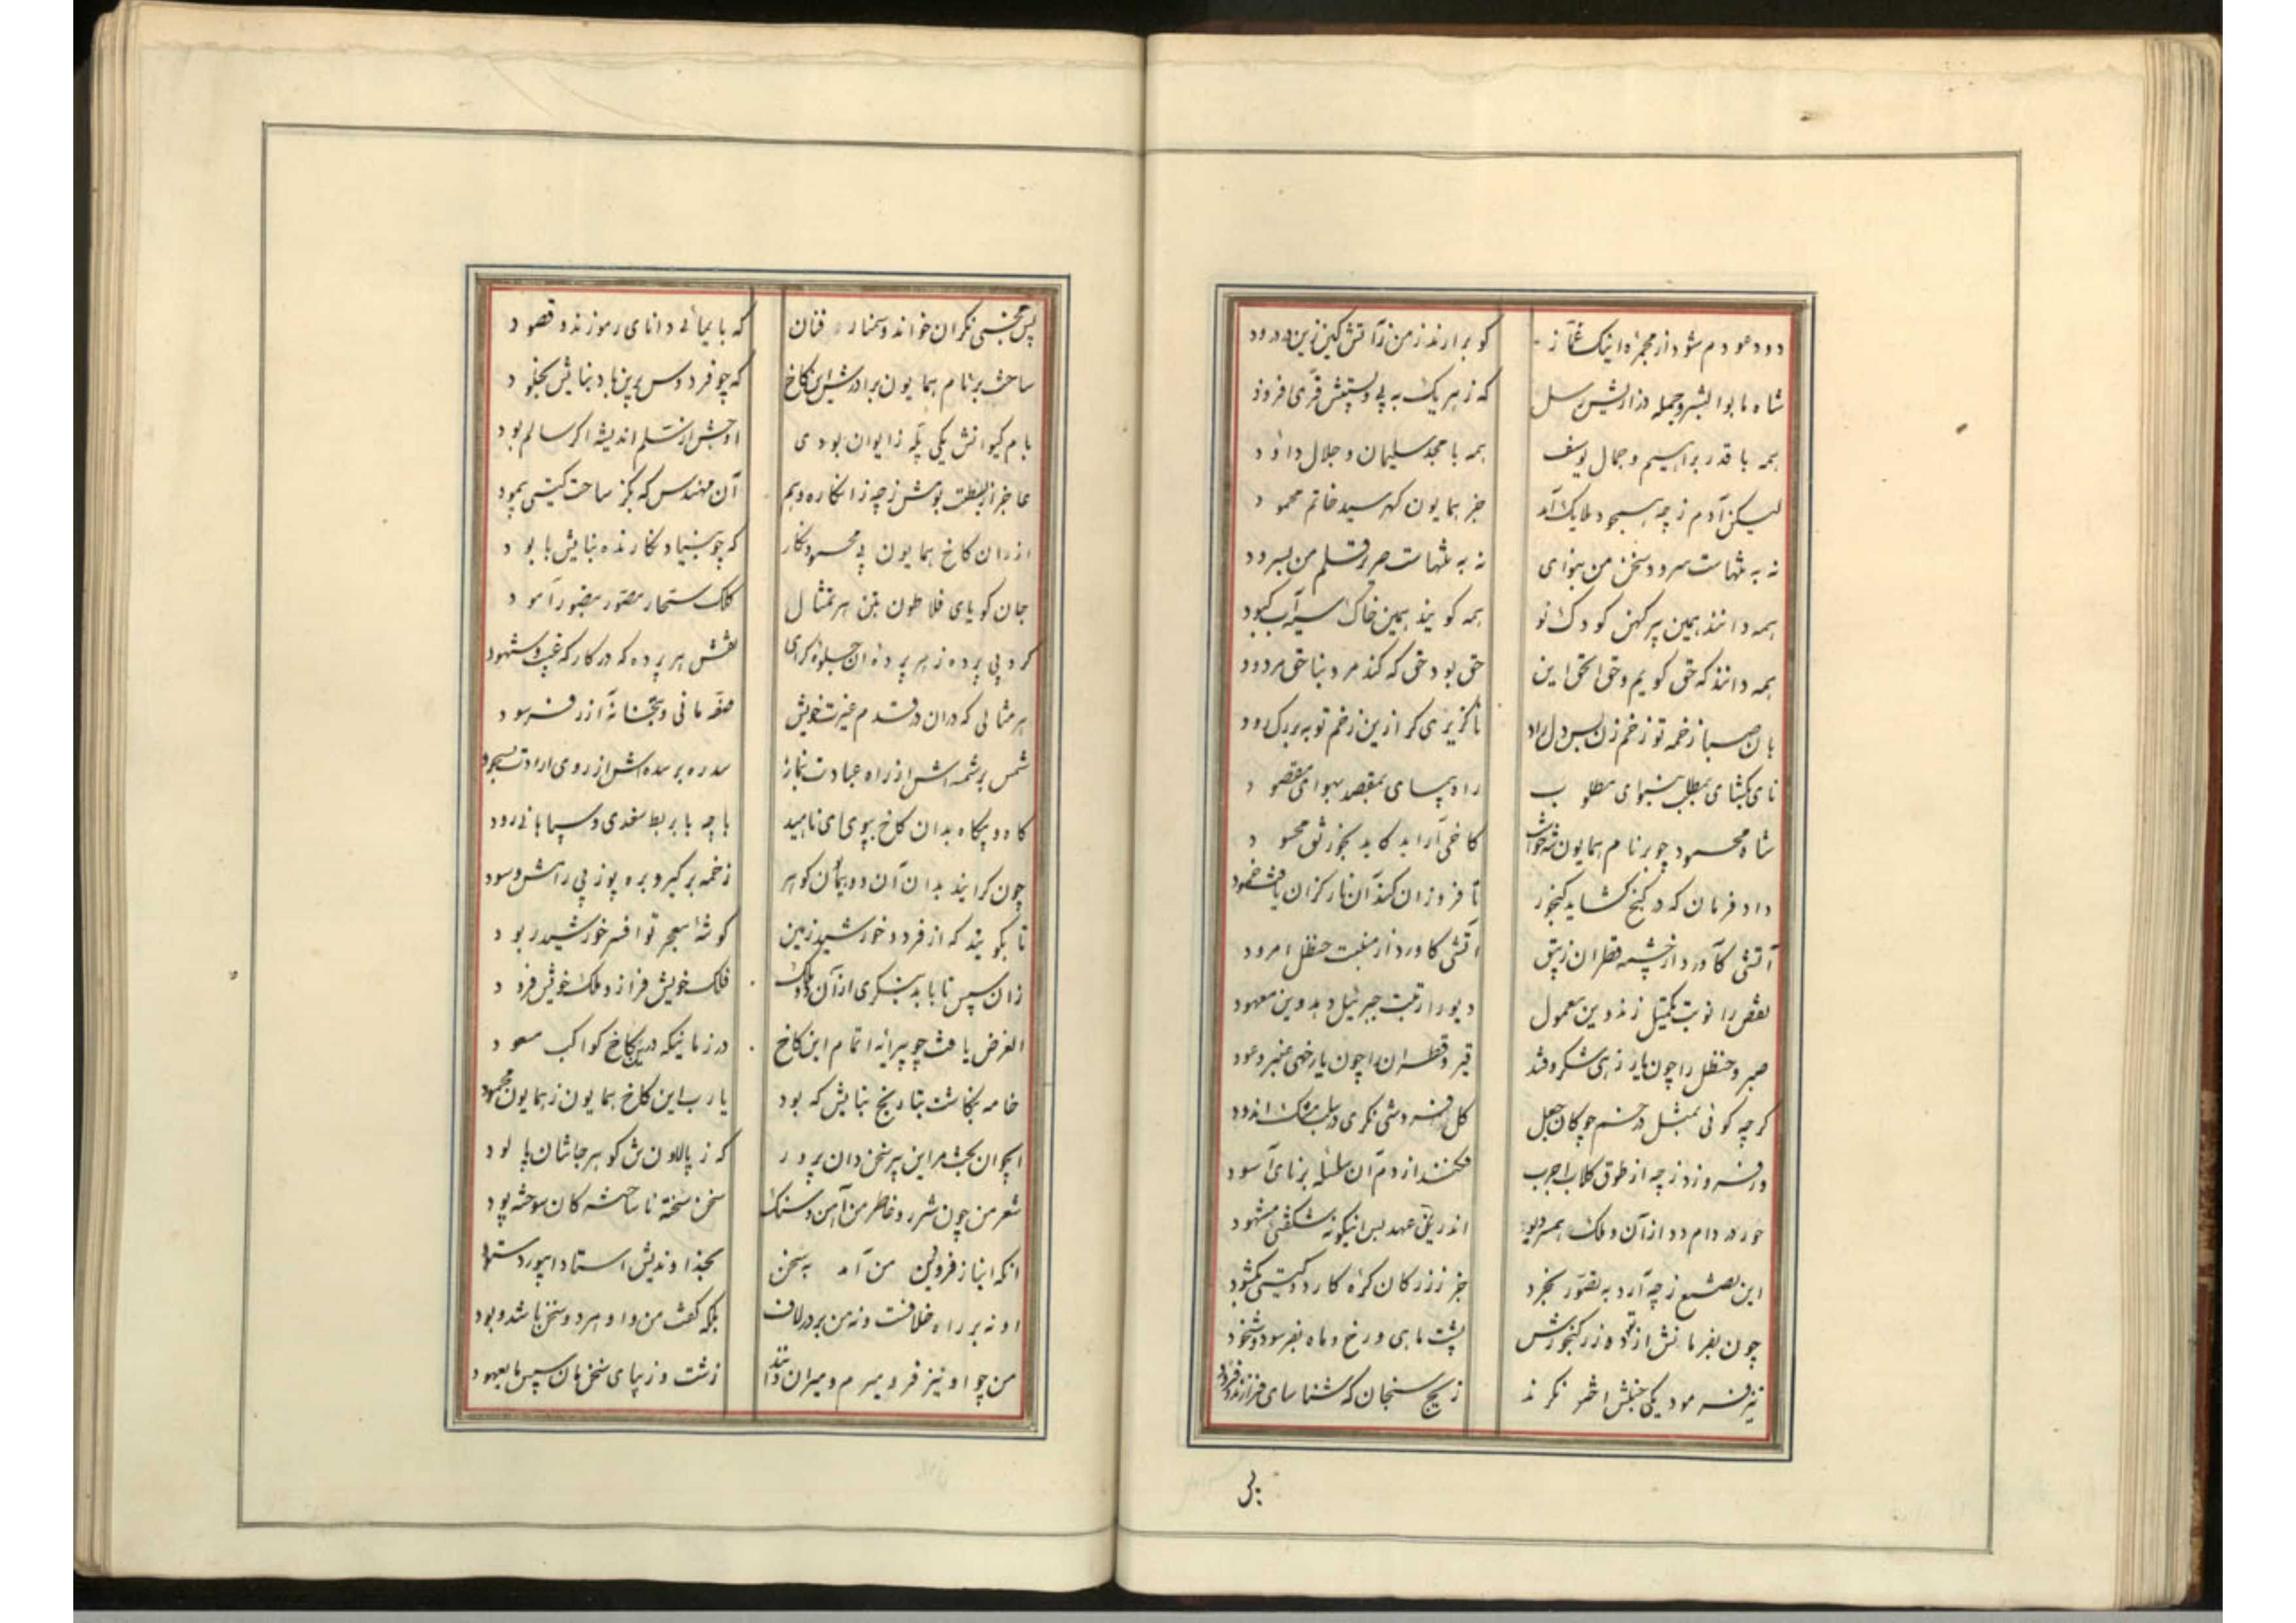 دود عود م شود از مجمره اینک غماز کو برارند ز من زآتش کین زین در دود
شاه ما بوالبشر و جمله درارایش رسل که ز هر یک به پی و پشتش فری افزود
همه با قدر براهیم و جمال یوسف همه با مجد سلیمان و جلال داود
لیکن آدم ز چه مسجود ملایک آمد جز همایون کهر سید خاتم محمود
نه به تنهاست سرود سخن من بنوای نه به تنهاست صریر قلم من بسرود
همه دانند همین پیر کهن کودک نو همه کویند همین خاک سیه آب کبود
همه دانند که حق کویم و حق الحق این حق بود حق که کند مرد بنا حق مردود
هان صبا زخمه تو زخم زن بس دل راد ناکزیری کر ازین زخم تو بر برک رود
نای بکشای بمطلب بنوای مطلوب راه پیمای بمقصد بهوای مقصود
شاه محمود چو بر نام همایون شه خواست کاخی آراید کاید بخورنق محسود
داد فرمان که در کنج کشاید کنجور تا فروزان کند آن نار کزان یافت خمود
آتشی کاورد از چشمه قطران زیبق آتشی کاورد از منبت حنظل امرود
نقص را نوبت تکمیل زند وین معمول دیو را رتبت جبرئیل دهد وین معهود
صبر و حنظل را چون یار زهی شکر و قند قیر و قطران را چون یار خهی عنبر و عود
کرچه کوئی بمثل درخم چوکان جعل کل فروشی نکری در سلب مشک اندود
درفروزد ز چه از طوق کلاب اجرب فکنند از دم آن سلسله بر نای آسود
حور در دام دد از آن و ملک همسر دیو اندرین عهد بس اینکونه شکفتی مشهود
این تصنع ز چه آرد به تصور بخرد جز ز زر کان کره کار دو کیتی بکشود
چون بفرمانش از توده زر کنجورش پشت ماهی و رخ ماه بفرسود و شخود
نیز فرمود یکی جنبش اختر نکرند زیج سنجان که شناسای فرازند و فرود
پی
پس مجسطی نکران خواند و سنمار فنان که بایمائی دانای رموزند و قصود
ساحت بر نام همایون برادرش این کاخ که چو فردوس برین باد بنایش بخلود
بام کیوانش یکی پله ز ایوان بودی اوجش از سلم اندیشه اکر سالم بود
عاجز از بسطت بومش ز چه زانکاره وهم آن مهندس که بکز ساحت کیتی پیمود
از در آن کاخ همایون پی محسود نکار که چو بنیاد نکارنده بنایش بابود
جان کویای فلاطون بتن هر تمثال کلک سحار مصور بصور آمود
کرد بی پرده ز هر پرده آن جلوه کرای نقش هر پرده که در کارکه غیب و شهود
هر مثالی که در آن در قدم غیرت خویش صفه مانی و بتخانه آزر فرسود
شمس بر شمسه اش از راه عبادت بنماز سدره بر سده اش از روی ارادت بسجود
کاه و بیکاه بدان کاخ بپوی ای ناهید با چه با بربط سغدی و سپاهانی رود
چون کرایند بدان آن دو همایون کوهر زخمه برکیر و بره پوز پی رامش و سود
تا بکویند که از فر دو خورشید زمین کوشه معجر تو افسر خورشید ربود
زان سپس تا بابد بنکری از آن دو ملک فلک خویش فراز و ملک خویش فرود
الغرض یافت چو پیرایه اتمام این کاخ در زمانیکه درین کاخ کواکب مسعود
خامه بنکاشت بتاریخ بنایش که بود یارب این کاخ همایون ز همایون محمود
ایجوان بخت مر این پیر سخن دان پرور که ز پالاون ش کوهر جانشان پالود
شعر من چون شرر و خاطر من آهن و سنک سخن سخته ناساخته کان سوخته پود
انکه انباز فرودین من آمد به سخن بخداوندیش استاد ابیورد ستود
او نه بر راه خلافت و نه من بر در لاف بلکه کفت من و او هر دو سخن باشد و بود
من چو او نیز فرو میرم و میران دانند زشت و زیبای سخن هان سپس ما بعهود